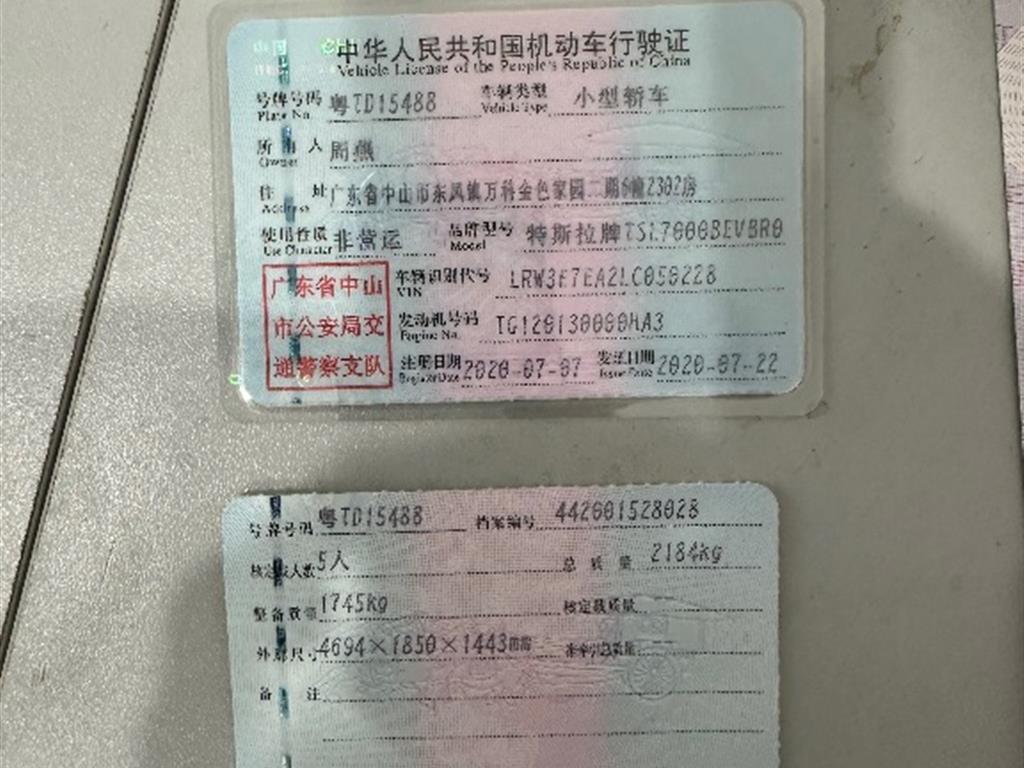 中华人民共和国机动车行驶证
Vehicle License of the People's Republic of China
号牌号码 粤TD15488 车辆类型 小型轿车
Plate No. Vehicle Type
所有人 周燕
Owner
住址 广东省中山市东凤镇万科金色家园二期6幢2302房
Address
使用性质 非营运 品牌型号 特斯拉牌TSL7000BEVBR0
Use Character Model
广东省中山
市公安局交
通警察支队
车辆识别代号 LRW3E7EA2LC050228
VIN
发动机号码 TG120130000HA3
Engine No.
注册日期 2020-07-07 发证日期 2020-07-22
Register Date Issue Date
号牌号码 粤TD15488 档案编号 442001528028
核定载人数 5人 总质量 2184kg
整备质量 1745kg 核定载质量 --
外廓尺寸 4694×1850×1443mm 准牵引总质量 --
备注